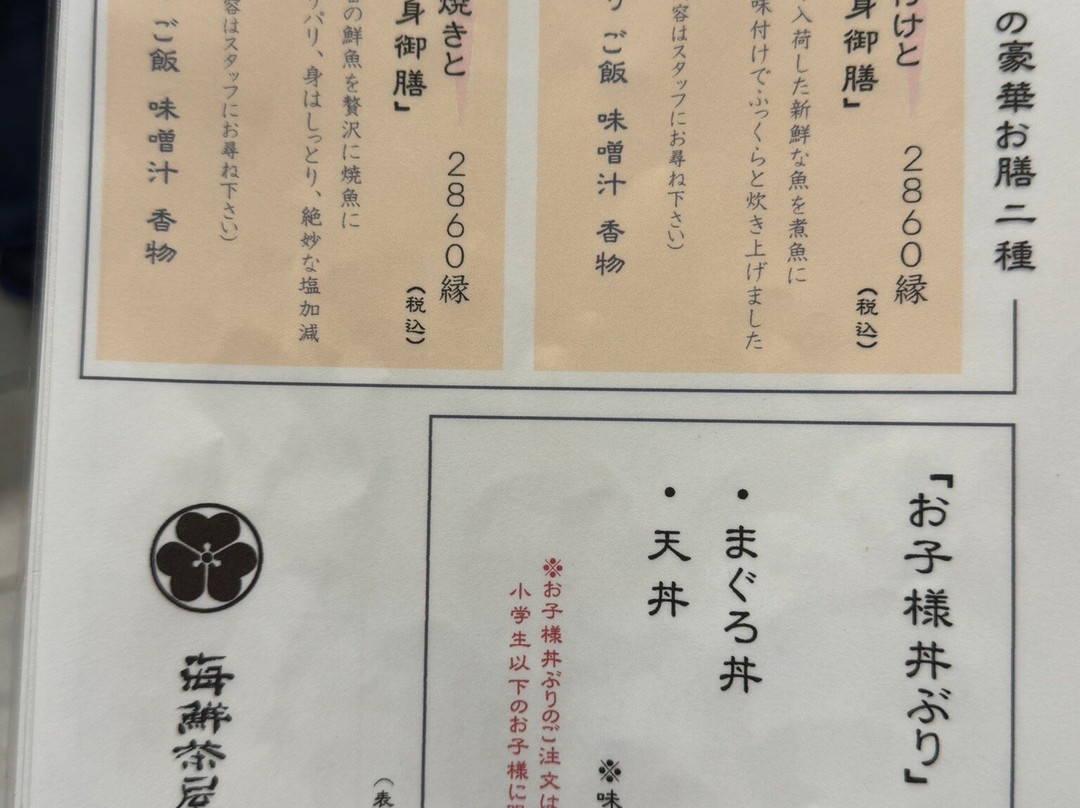 の豪華お膳二種
付けと
身御膳」
2860縁
(税込)
入荷した新鮮な魚を煮魚に
味付けでふっくらと炊き上げました
容はスタッフにお尋ね下さい)
ご飯 味噌汁 香物
焼きと
身御膳」
2860縁
(税込)
の鮮魚を贅沢に焼魚に
パリ、身はしっとり、絶妙な塩加減
容はスタッフにお尋ね下さい)
ご飯 味噌汁 香物
「お子様丼ぶり」
・まぐろ丼
・天丼
※味
※お子様丼ぶりのご注文は
小学生以下のお子様に
(表
海鮮茶屋